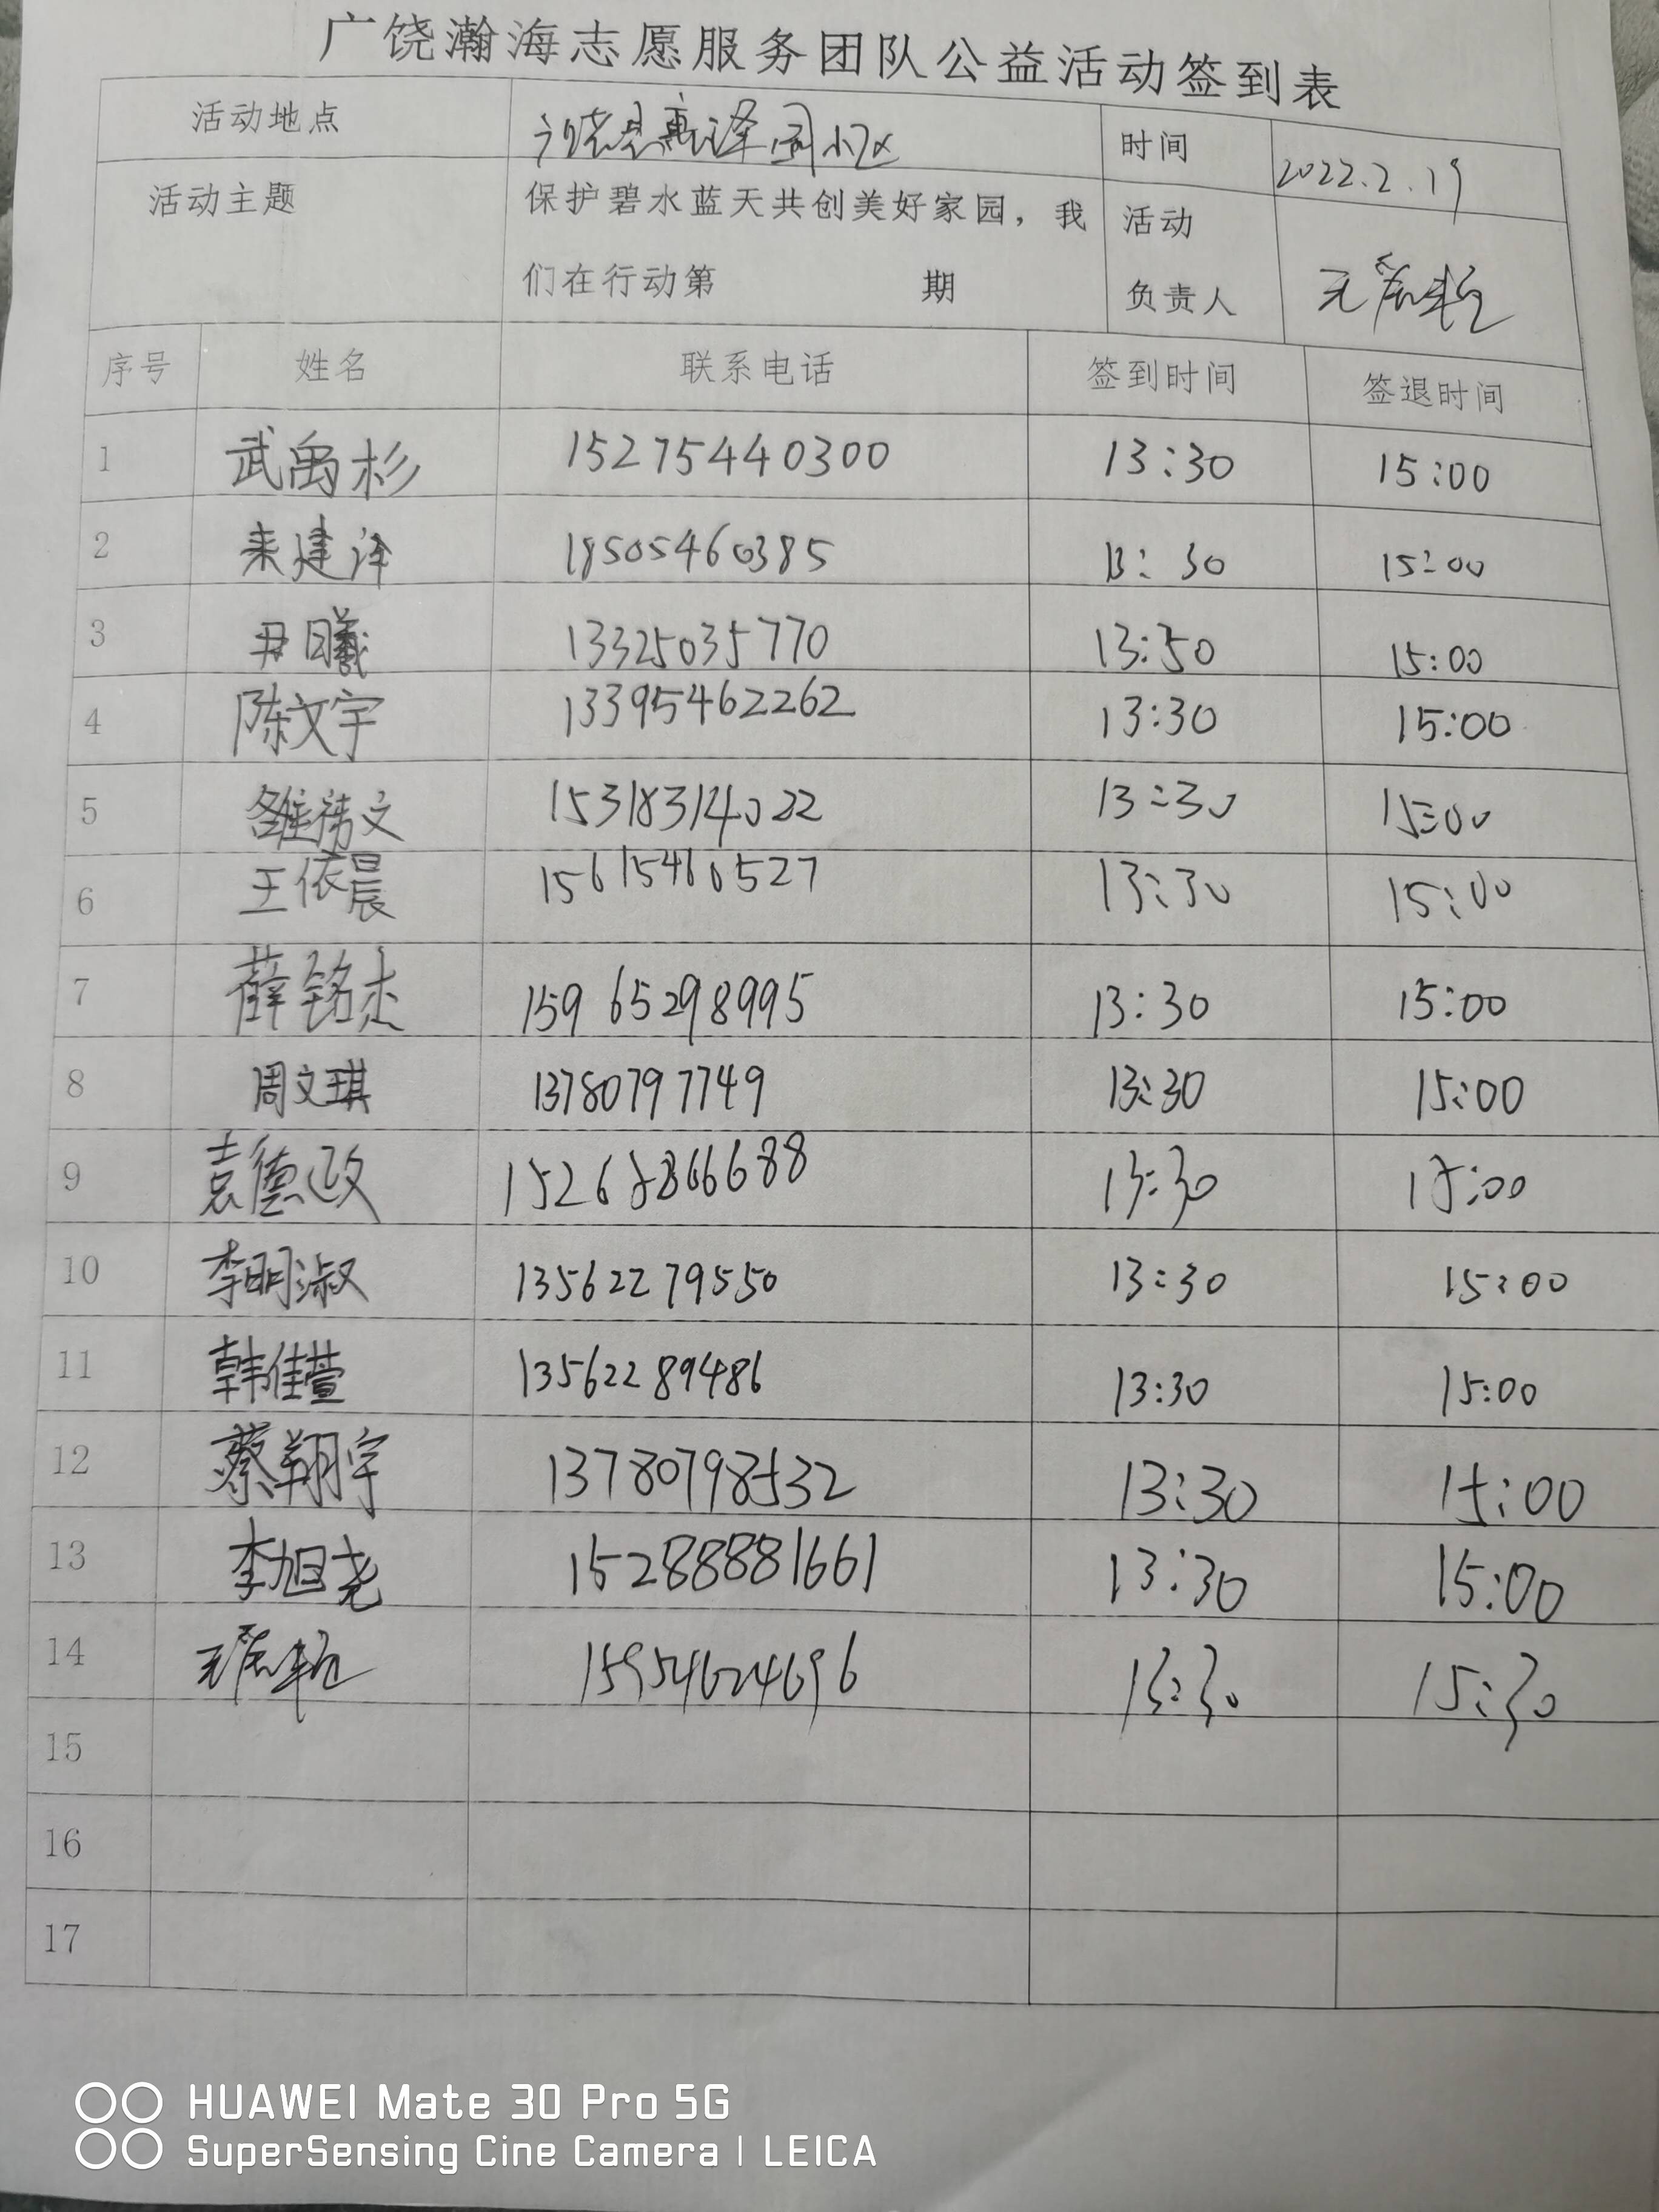 广饶瀚海志愿服务团队公益活动签到表
活动地点 广饶县惠泽园小区 时间 2022.2.19
活动主题 保护碧水蓝天共创美好家园，我 活动
们在行动第 期 负责人
序号 姓名 联系电话 签到时间 签退时间
1 武禹杉 15275440300 13:30 15:00
2 建泽 18505460385 13:30 15:00
3 尹曦 13325035770 13:50 15:00
4 陈文宇 13395462262 13:30 15:00
5 文 15318314022 13:30 15:00
6 王依晨 15615460527 13:30 15:00
7 薛铭杰 15965298995 13:30 15:00
8 周文琪 13780797749 13:30 15:00
9 袁德政 13:30 15:00
10 李明淑 13562279550 13:30 15:00
11 韩佳萱 13562289486 13:30 15:00
12 蔡翔宇 13780798532 13:30 15:00
13 李旭尧 15288881661 13:30 15:00
14 15954624696 13:30 15:30
15
16
17
HUAWEI Mate 30 Pro 5G
SuperSensing Cine Camera | LEICA